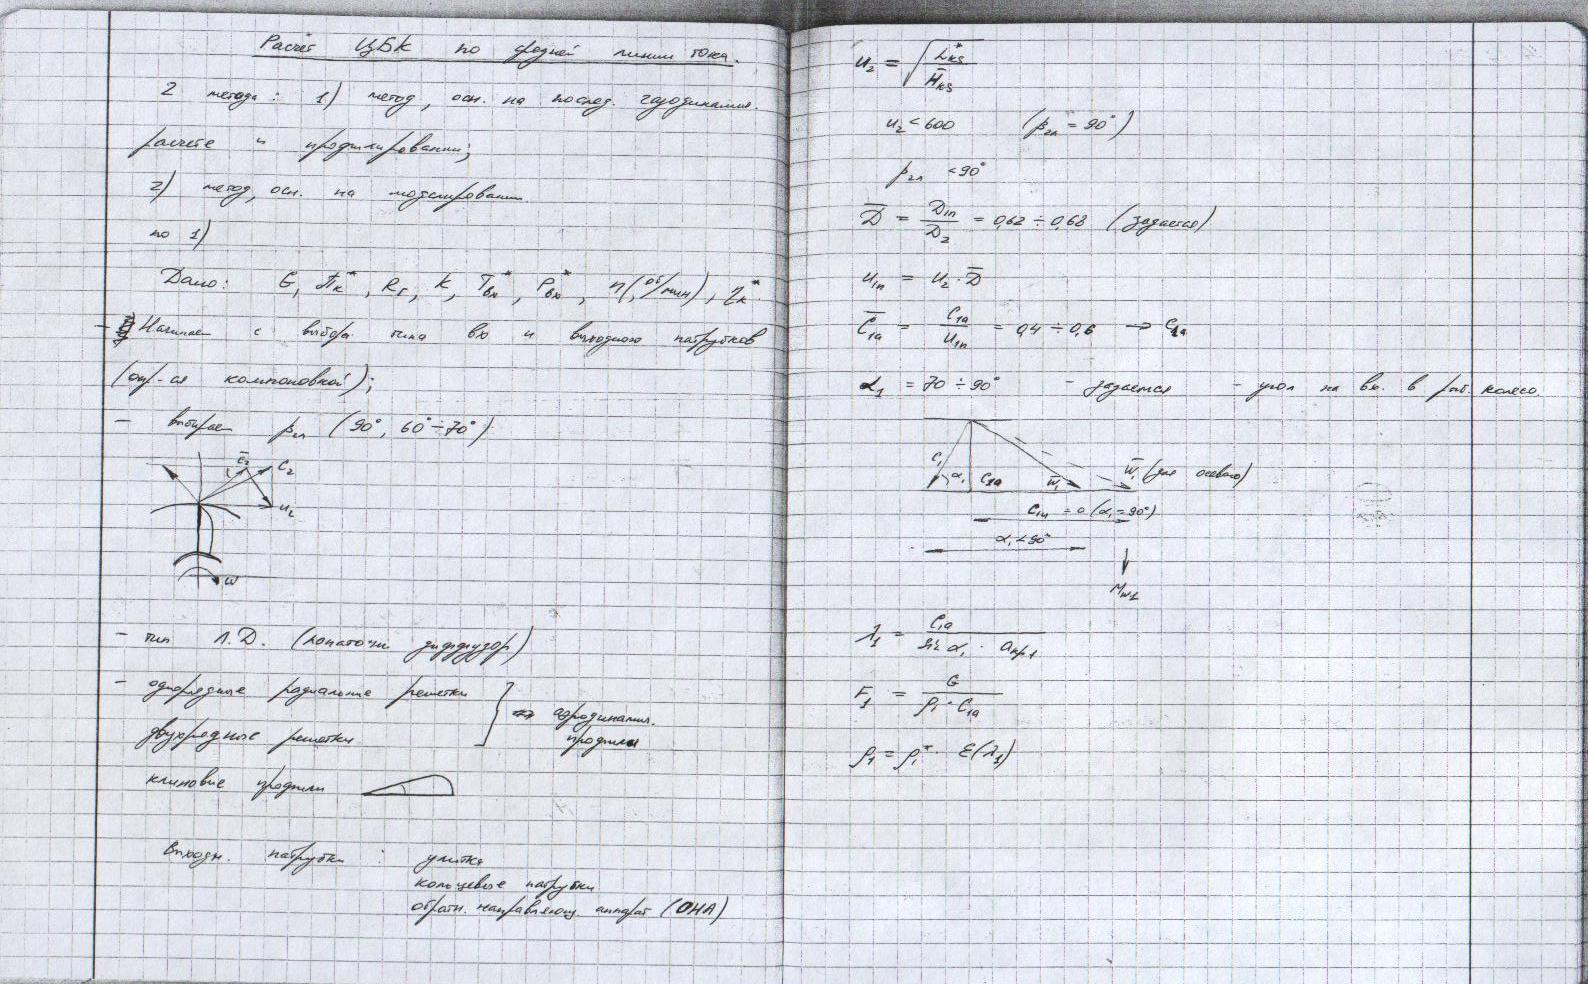 Расчёт ЦБК по средней линии тока.
2 метода: 1) метод, осн. на послед. газодинамич.
расчете и профилировании;
2) метод, осн. на моделировании
по 1)
Дано: G, πк*, Rг, k, Tвх*, Pвх*, n(об/мин), ηк*.
- Начинаем с выбора типа вх и выходного патрубков
(опр-ся компоновкой);
- выбираем β2л (90°, 60°÷70°)
c2
c2
u2
ω
- тип Л.Д. (лопаточн диффузор)
- однорядные радиальные решетки
двухрядные решетки
аэродинамич.
профили
клиновые профили
Выходн. патрубки: улитка
кольцевые патрубки
обратн. направляющ. аппарат (ОНА)
u2 = √(L*кs / H̄кs)
u2 < 600 (β2л = 90°)
β2л < 90°
D̄ = D1п / D2 = 0,62 ÷ 0,68 (задается)
u1п = u2 · D̄
C̄1a = C1a / u1п = 0,4 ÷ 0,6 → C1a
α1 = 70 ÷ 90° - задается - угол на вх. в раб. колесо.
C1 α1 C1a W̄1 W̄1 (для осевого)
C1u = 0 (α1 = 90°)
α1 < 90°
Mw1
λ1 = C1a / (sin α1 · aкр1)
F1 = G / (ρ1 · C1a)
ρ1 = ρ1* · ε(λ1)